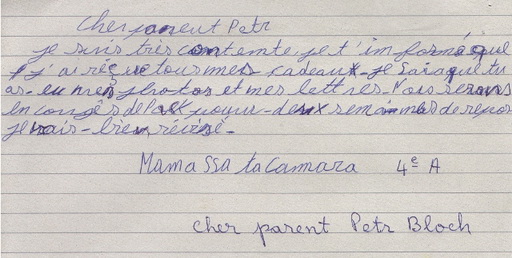 Cher parent Petr
je suis très contente je t'informé que
j'ai réçue tous mes cadeaux. je sais que tu
as eu mes photos et mes lettres. Nous serons
en congés de Paix pour deux semaines de repos
je vais bien
Mamassata Camara 4e A
cher parent Petr Bloch